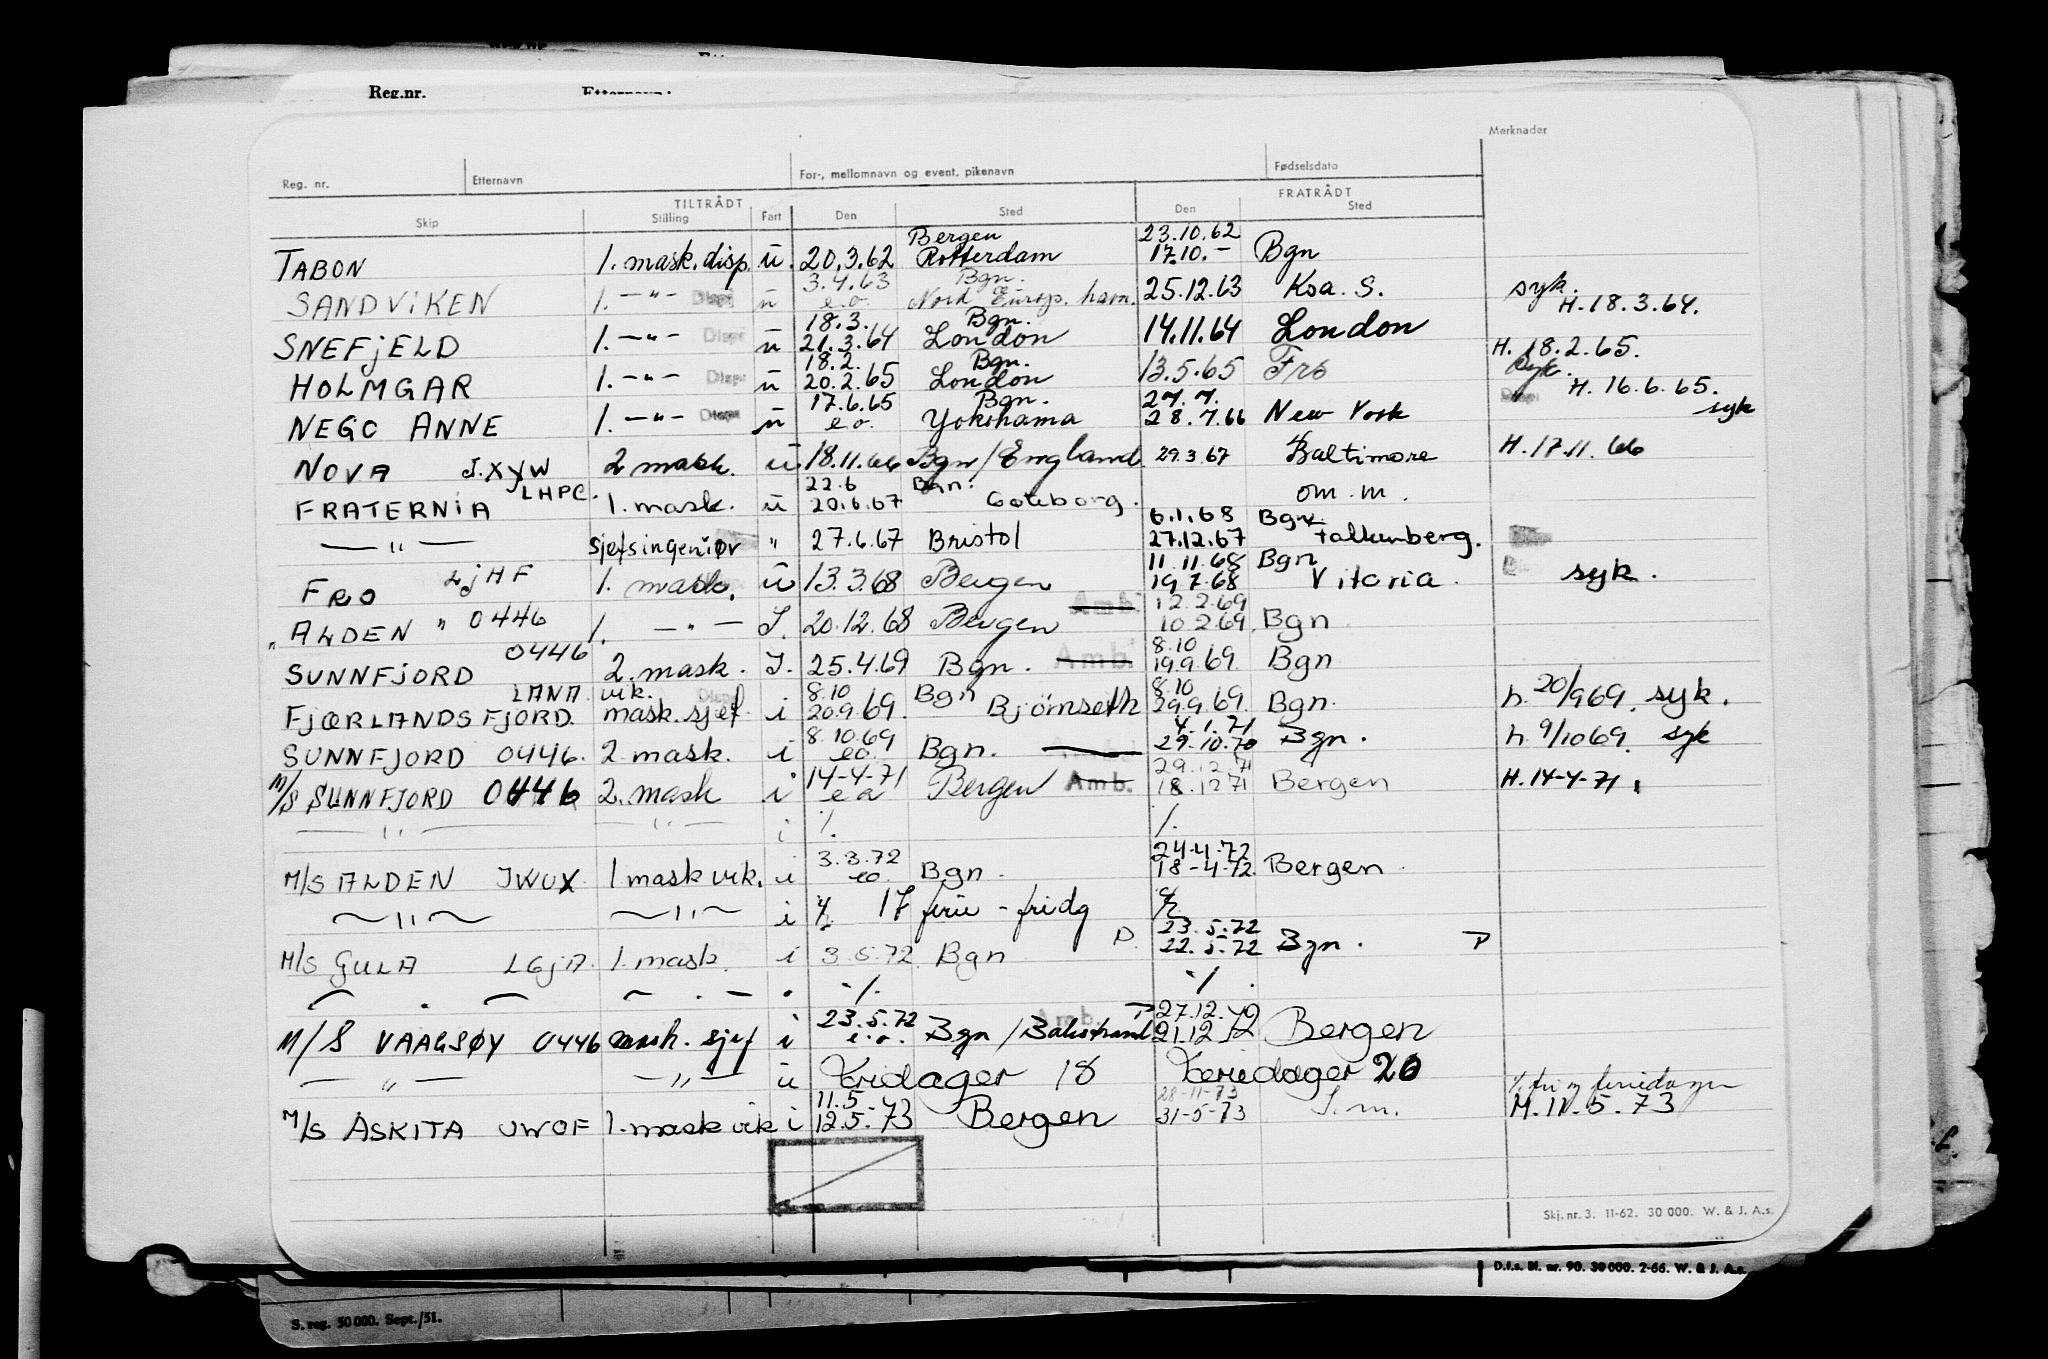 Reg.nr.
Reg. nr. Etternavn For-, mellomnavn og event. pikenavn Fødselsdato Merknader
TILTRÅDT FRATRÅDT
Skip Stilling Fart Den Sted Den Sted
Bergen 23.10.62
TABON 1. mask. disp. u. 20.3.62 Rotterdam 17.10. - Bgn
3.4.63 Bgn.
SANDVIKEN 1. -"- Disp u e.o. Nord Europ. havn. 25.12.63 Ksa. S. syk. H. 18.3.64.
18.3. Bgn.
SNEFJELD 1. -"- Disp u 21.3.64 London 14.11.64 London
18.2. Bgn. H. 18.2.65.
HOLMGAR 1. -"- Disp u 20.2.65 London 13.5.65 Fro syk. H. 16.6.65.
17.6.65 Bgn. 27.7.
NEGO ANNE 1. -"- Disp u e.o. Yokohama 28.7.66 New York syk
NOVA J.XYW 2 mask. u 18.11.66 Bgn/England 29.3.67 Baltimore H. 17.11.66
LHPC. 22.6 Bgn.
FRATERNIA 1. mask. u 20.6.67 Goteborg. om. m.
6.1.68 Bgn
-"- sjefsingeniør " 27.6.67 Bristol 27.12.67 Falkenberg.
11.11.68 Bgn
FRO LJHF 1. mask. u 13.3.68 Bergen 19.7.68 Vitoria. syk.
Amb. 12.2.69
" ALDEN " 0446 1. -"- I. 20.12.68 Bergen 10.2.69. Bgn
0446 8.10
SUNNFJORD 2. mask. I. 25.4.69 Bgn. Amb. 19.9.69. Bgn
LANA vik. 8.10 Bgn 8.10
FJÆRLANDSFJORD. mask. sjef i 20.9.69. Bjömseth 29.9.69. Bgn. h. 20/969. syk.
8.10.69 4.1.71
SUNNFJORD 0446. 2 mask. i eo. Bgn. 29.10.70 Bgn. h. 9/1069. syk
14-4-71 29.12.71
M/S SUNNFJORD 0446 2. mask i ea Bergen Amb. 18.1271 Bergen H. 14-4-71.
-"- -"- i /. /.
3.3.72 24-4-72
M/S ALDEN JWUX 1 mask vik. i eo. Bgn. 18-4-72. Bergen.
~"~ ~"~ i 17 ferie - fridg
23.5.72
M/S GULA LGJA. 1. mask. i 3.5.72 Bgn P. 22.5.72 Bgn. P
·/. ·/.
23.5.72 Amb. P 27.12.72
M/S VAAGSØY 0446 mask. sjef i e.o. Bgn/Balestrand 21.12.72 Bergen
-"- -"- u Fridager 18 Feriedager 20
11.5 28-11-73 fri og feriedager
M/S ASKITA JWOF 1. mask vik i 12.5.73 Bergen 31-5-73 S.m. M. 11.5.73
Skj. nr. 3. 11-62. 30 000. W. & J. A.s.
D.f.s. Bl. nr. 90. 30 000. 2-66. W. & J. A.s.
S. reg. 50 000. Sept./51.